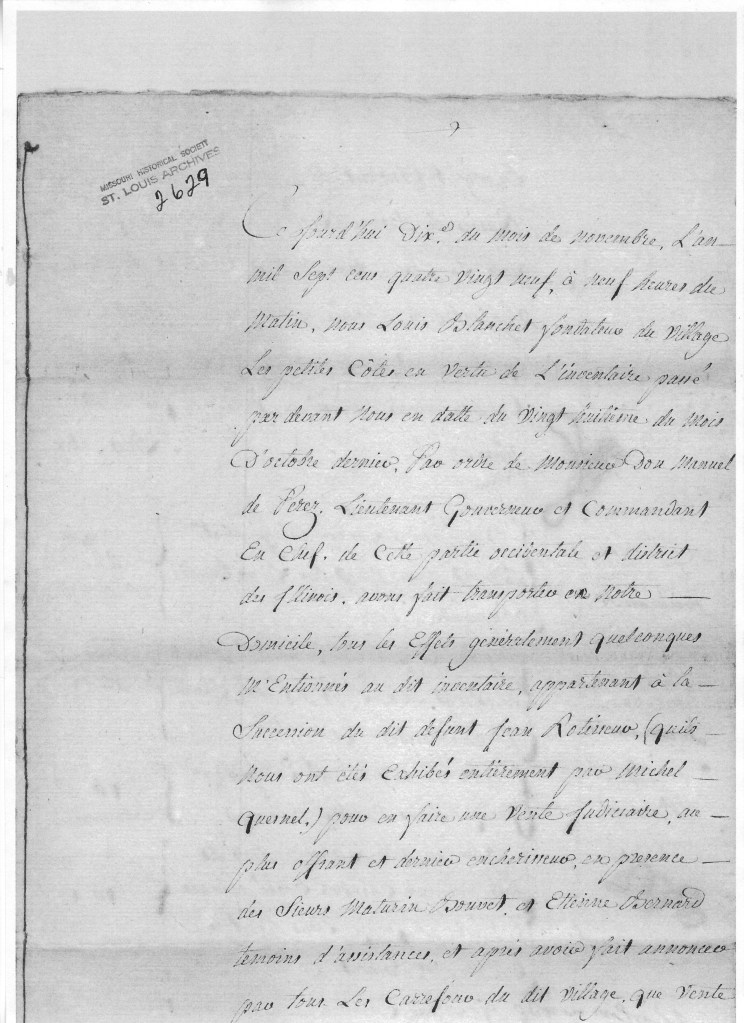 MISSOURI HISTORICAL SOCIETY
ST. LOUIS ARCHIVES
2629
Ce Jourd'hui Dix.e du Mois de Novembre, L'an —
mil Sept cens quatre vingt neuf, à neuf heures du
Matin, nous Louis Blanchet fondateur du Village
Les petites Côtes en Vertu de L'inventaire passé
par devant Nous en datte du Vingt huitieme du Mois
D'octobre dernier, Par ordre de Monsieur Don Manuel
de Perez, Lieutenant Gouverneur et Commandant
En Chef. de Cette partie occidentale et district
des Illinois. avons fait transporter en Notre —
Domicile, tous les Effets généralement quelconques
M'Entionnés au dit inventaire, appartenant à la —
Succession du dit défunt Jean (quils
Nous ont étés Exhibés entièrement par Michel —
Quesnel.) pour en faire une Vente Judiciaire, au —
plus offrant et dernier encherisseur, en presence —
des Sieurs Maturin Bouvet, et Etienne Bernard
temoins d'assistances, et après avoir fait annoncer
par tous Les Carrefour du dit Village, que Vente